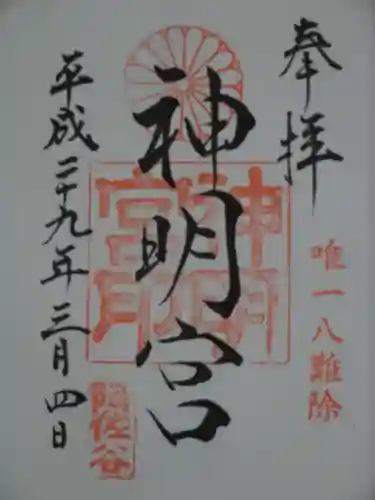 奉拝
唯一八難除
神明宮
神明宮
平成二十九年三月四日
阿佐谷